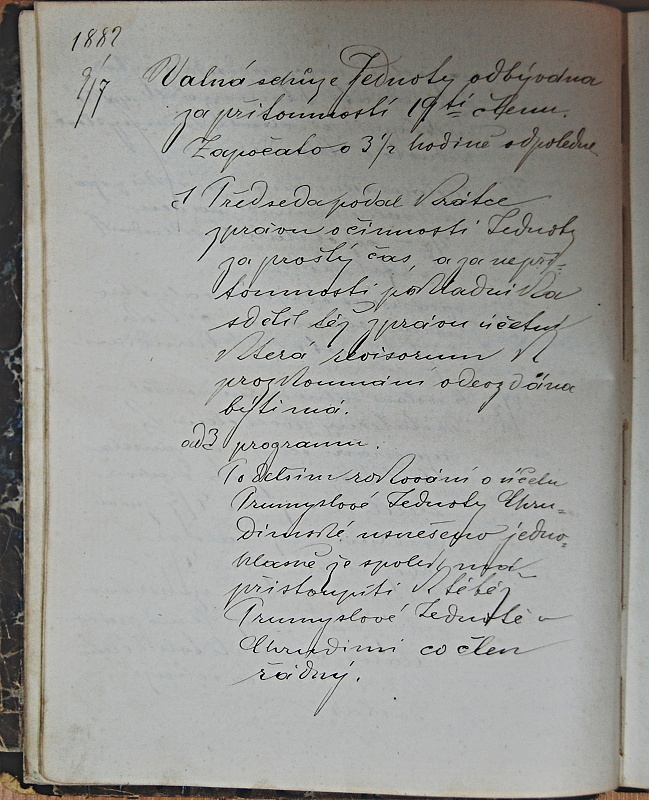 1882
9/7 Valná schůze Jednoty odbývána
za přítomnosti 19ti členu.
Započato o 3 1/2 hodině odpoledne
Předseda podal krátce
zprávu o činnosti Jednoty
za prošlý čas, a za nepří-
tomnosti pokladníka
sdělil též zprávu účetní
která revisorum k
prozkoumání odevzdána
býti má.
ad 3 programu.
Po delším rokování o účelu
Prumyslové Jednoty Chru-
dimské usnešeno jedno-
hlasně že spolek má
přistoupiti k téběž
Prumyslové Jednotě v
Chrudimi co člen
řádný.